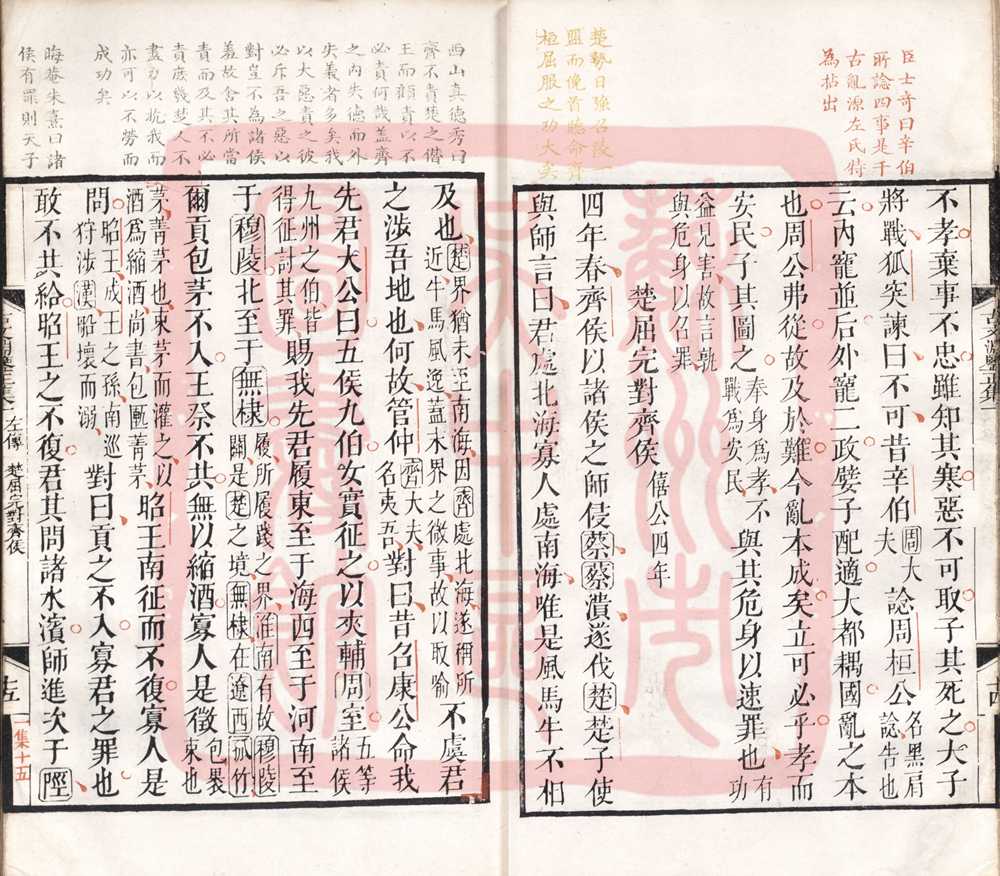 臣士奇曰辛伯
所諗四事是千
古亂源左氏特
為拈出
楚勢日強召陵一
盟而俛首聽命齊
桓屈服之功大矣
不孝棄事不忠雖知其寒惡不可取子其死之大子
將戰狐突諫曰不可昔辛伯周大夫諗周桓公名黑肩諗告也
云內寵並后外寵二政嬖子配適大都耦國亂之本
也周公弗從故及於難今亂本成矣立可必乎孝而
安民子其圖之奉身為孝不戰為安民與其危身以速罪也有功
益見害故言孰與危身以召罪
楚屈完對齊侯僖公四年
四年春齊侯以諸侯之師侵蔡蔡潰遂伐楚楚子使
與師言曰君處北海寡人處南海唯是風馬牛不相
西山真德秀曰
齊不責楚之僭
王而顧責以不
必責何哉蓋齊
之內失德而外
失義者多矣我
以大惡責之彼
必斥吾之惡以
對豈不為諸侯
羞故舍其所當
責而及其不必
責庶幾楚人不
盡力以抗我而
亦可以不勞而
成功矣
晦菴朱熹曰諸
侯有罪則天子
及也楚界猶未至南海因齊處北海遂稱所近牛馬風逸蓋末界之微事故以取喻不虞君
之涉吾地也何故管仲齊大夫名夷吾對曰昔召康公命我
先君大公曰五侯九伯女實征之以夾輔周室五等諸侯
九州之伯皆得征討其罪賜我先君履東至于海西至于河南至
于穆陵北至于無棣履所履踐之界淮南有故穆陵關是楚之境無棣在遼西孤竹
爾貢包茅不入王祭不共無以縮酒寡人是徵包裹束也
茅菁茅也束茅而灌之以酒為縮酒尚書包匭菁茅昭王南征而不復寡人是
問昭王成王之孫南巡狩涉漢船壞而溺對曰貢之不入寡君之罪也
敢不共給昭王之不復君其問諸水濱師進次于陘
左傳 楚屈完對齊侯
十五
一集十五